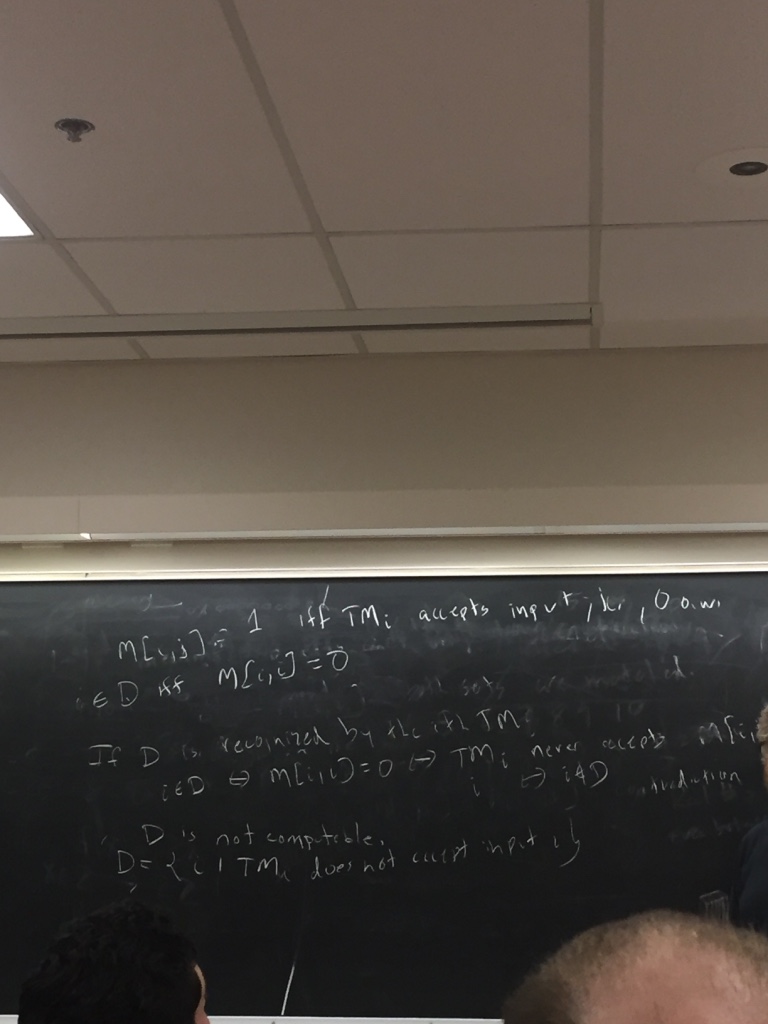 M[i,j] = 1 iff TMi accepts input j, 0 o.w.
i ∈ D iff M[i,i] = 0
If D is recognized by the ith TM
i ∈ D ⇔ M[i,i] = 0 ⇔ TMi never accepts M[i,
i ⇔ i ∉ D
D is not computable.
D = { i | TMi does not accept input i }